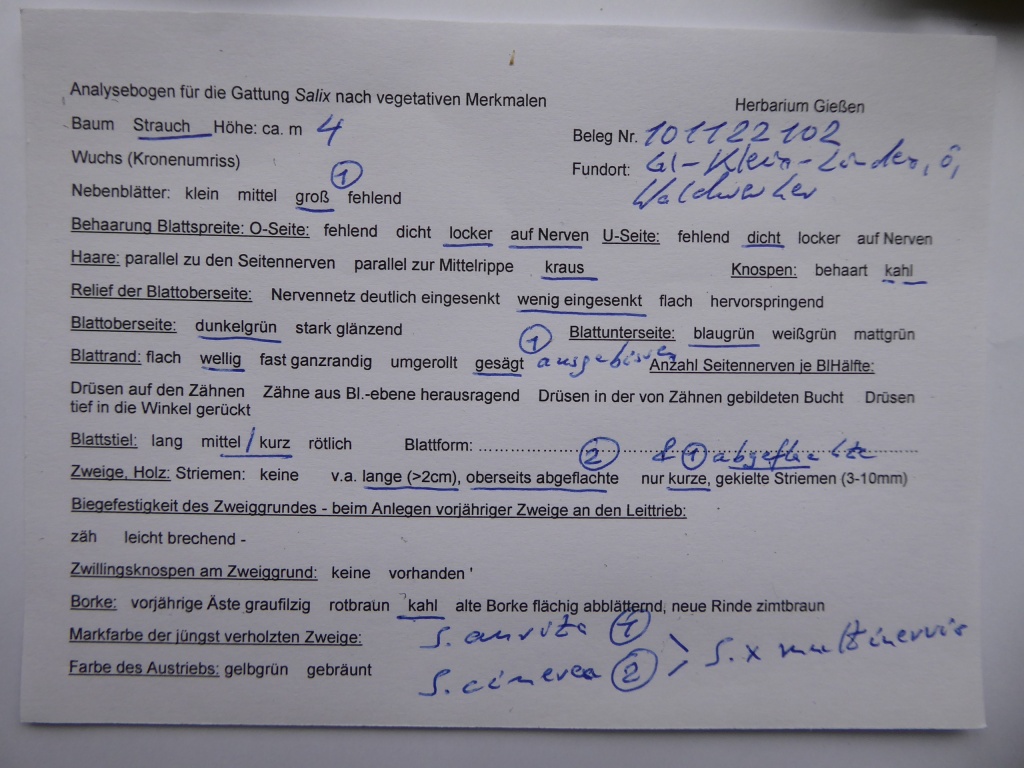 Analysebogen für die Gattung Salix nach vegetativen Merkmalen
Herbarium Gießen
Baum Strauch Höhe: ca. m 4
Beleg Nr. 101122102
Wuchs (Kronenumriss)
Fundort: GI-Klein-Linden, ö,
Nebenblätter: klein mittel groß 1 fehlend
Behaarung Blattspreite: O-Seite: fehlend dicht locker auf Nerven U-Seite: fehlend dicht locker auf Nerven
Haare: parallel zu den Seitennerven parallel zur Mittelrippe kraus Knospen: behaart kahl
Relief der Blattoberseite: Nervennetz deutlich eingesenkt wenig eingesenkt flach hervorspringend
Blattoberseite: dunkelgrün stark glänzend 1 Blattunterseite: blaugrün weißgrün mattgrün
Blattrand: flach wellig fast ganzrandig umgerollt gesägt ausgebissen Anzahl Seitennerven je BlHälfte:
Drüsen auf den Zähnen Zähne aus Bl.-ebene herausragend Drüsen in der von Zähnen gebildeten Bucht Drüsen
tief in die Winkel gerückt
Blattstiel: lang mittel / kurz rötlich Blattform: 2 & 1 abgeflachte
Zweige, Holz: Striemen: keine v.a. lange (>2cm), oberseits abgeflachte nur kurze, gekielte Striemen (3-10mm)
Biegefestigkeit des Zweiggrundes - beim Anlegen vorjähriger Zweige an den Leittrieb:
zäh leicht brechend -
Zwillingsknospen am Zweiggrund: keine vorhanden '
Borke: vorjährige Äste graufilzig rotbraun kahl alte Borke flächig abblätternd, neue Rinde zimtbraun
Markfarbe der jüngst verholzten Zweige: S. aurita 1
> S. x multinervis
Farbe des Austriebs: gelbgrün gebräunt S. cinerea 2